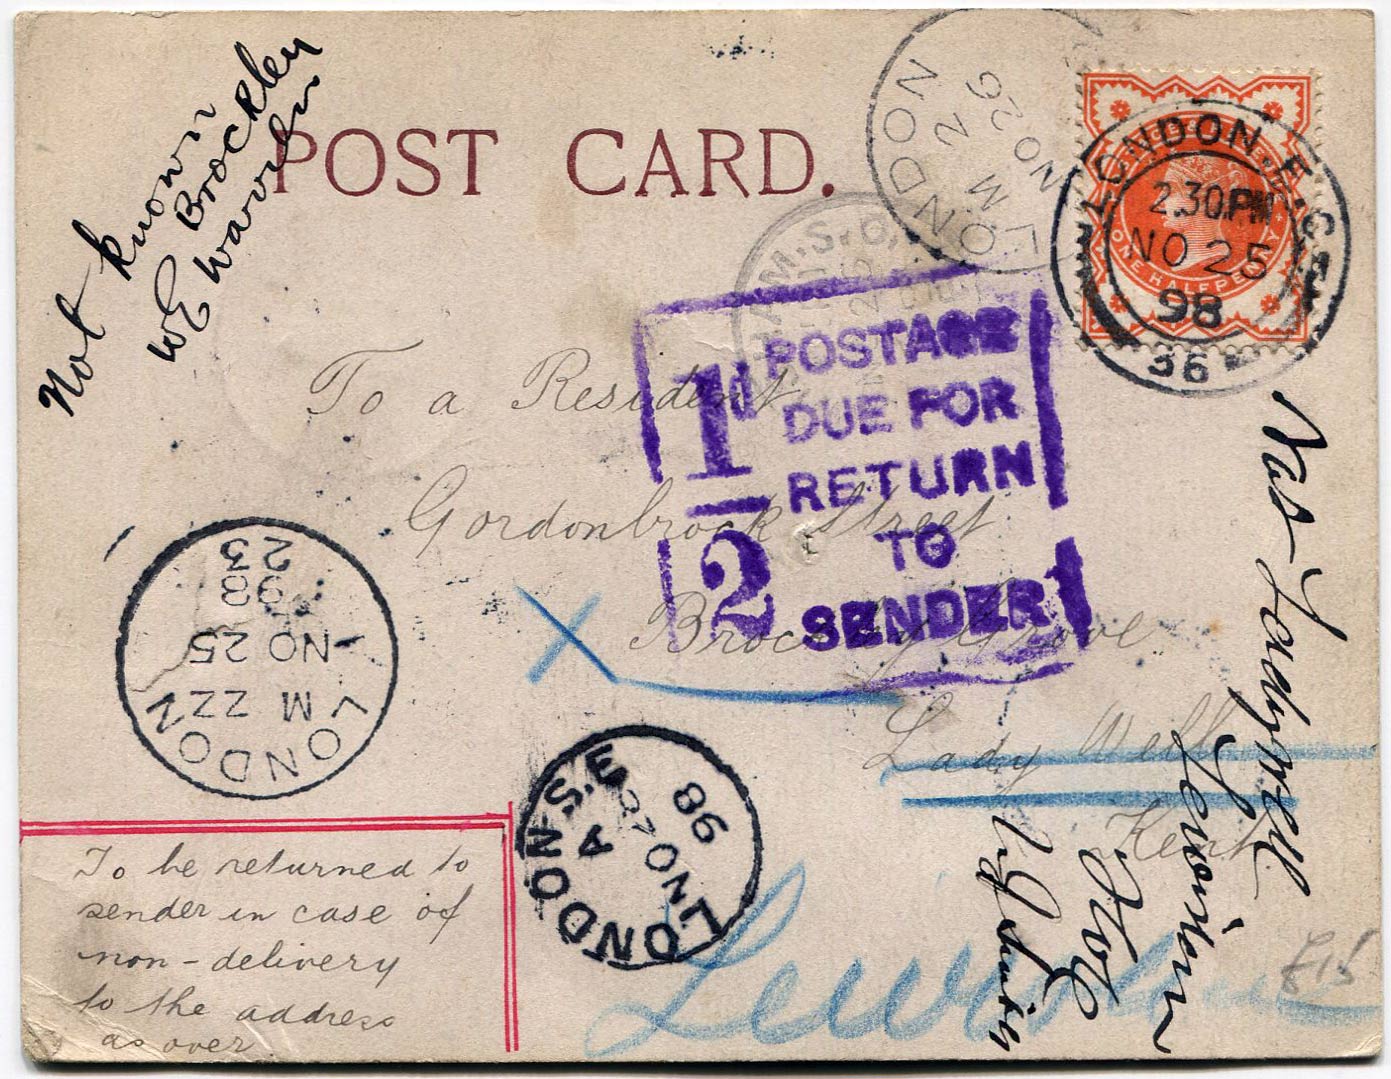 Not known
Brockley
WE Warren
POST CARD.
LONDON
M
2
NO 26
LONDON.E.C
2.30PM
NO 25
98
36
ONE HALFPENNY
HAM.S.O.
1d
2
POSTAGE
DUE FOR
RETURN
TO
SENDER
To a Resident,
Gordonbrock Street
Brockley Grove
Lady Well
Kent
LONDON
M ZZ
NO 25
98
23
LONDON S.E
A
NO 27
98
To be returned to
sender in case of
non-delivery
to the address
as over.
Ladywell
Lewisham
Lewisham
£15